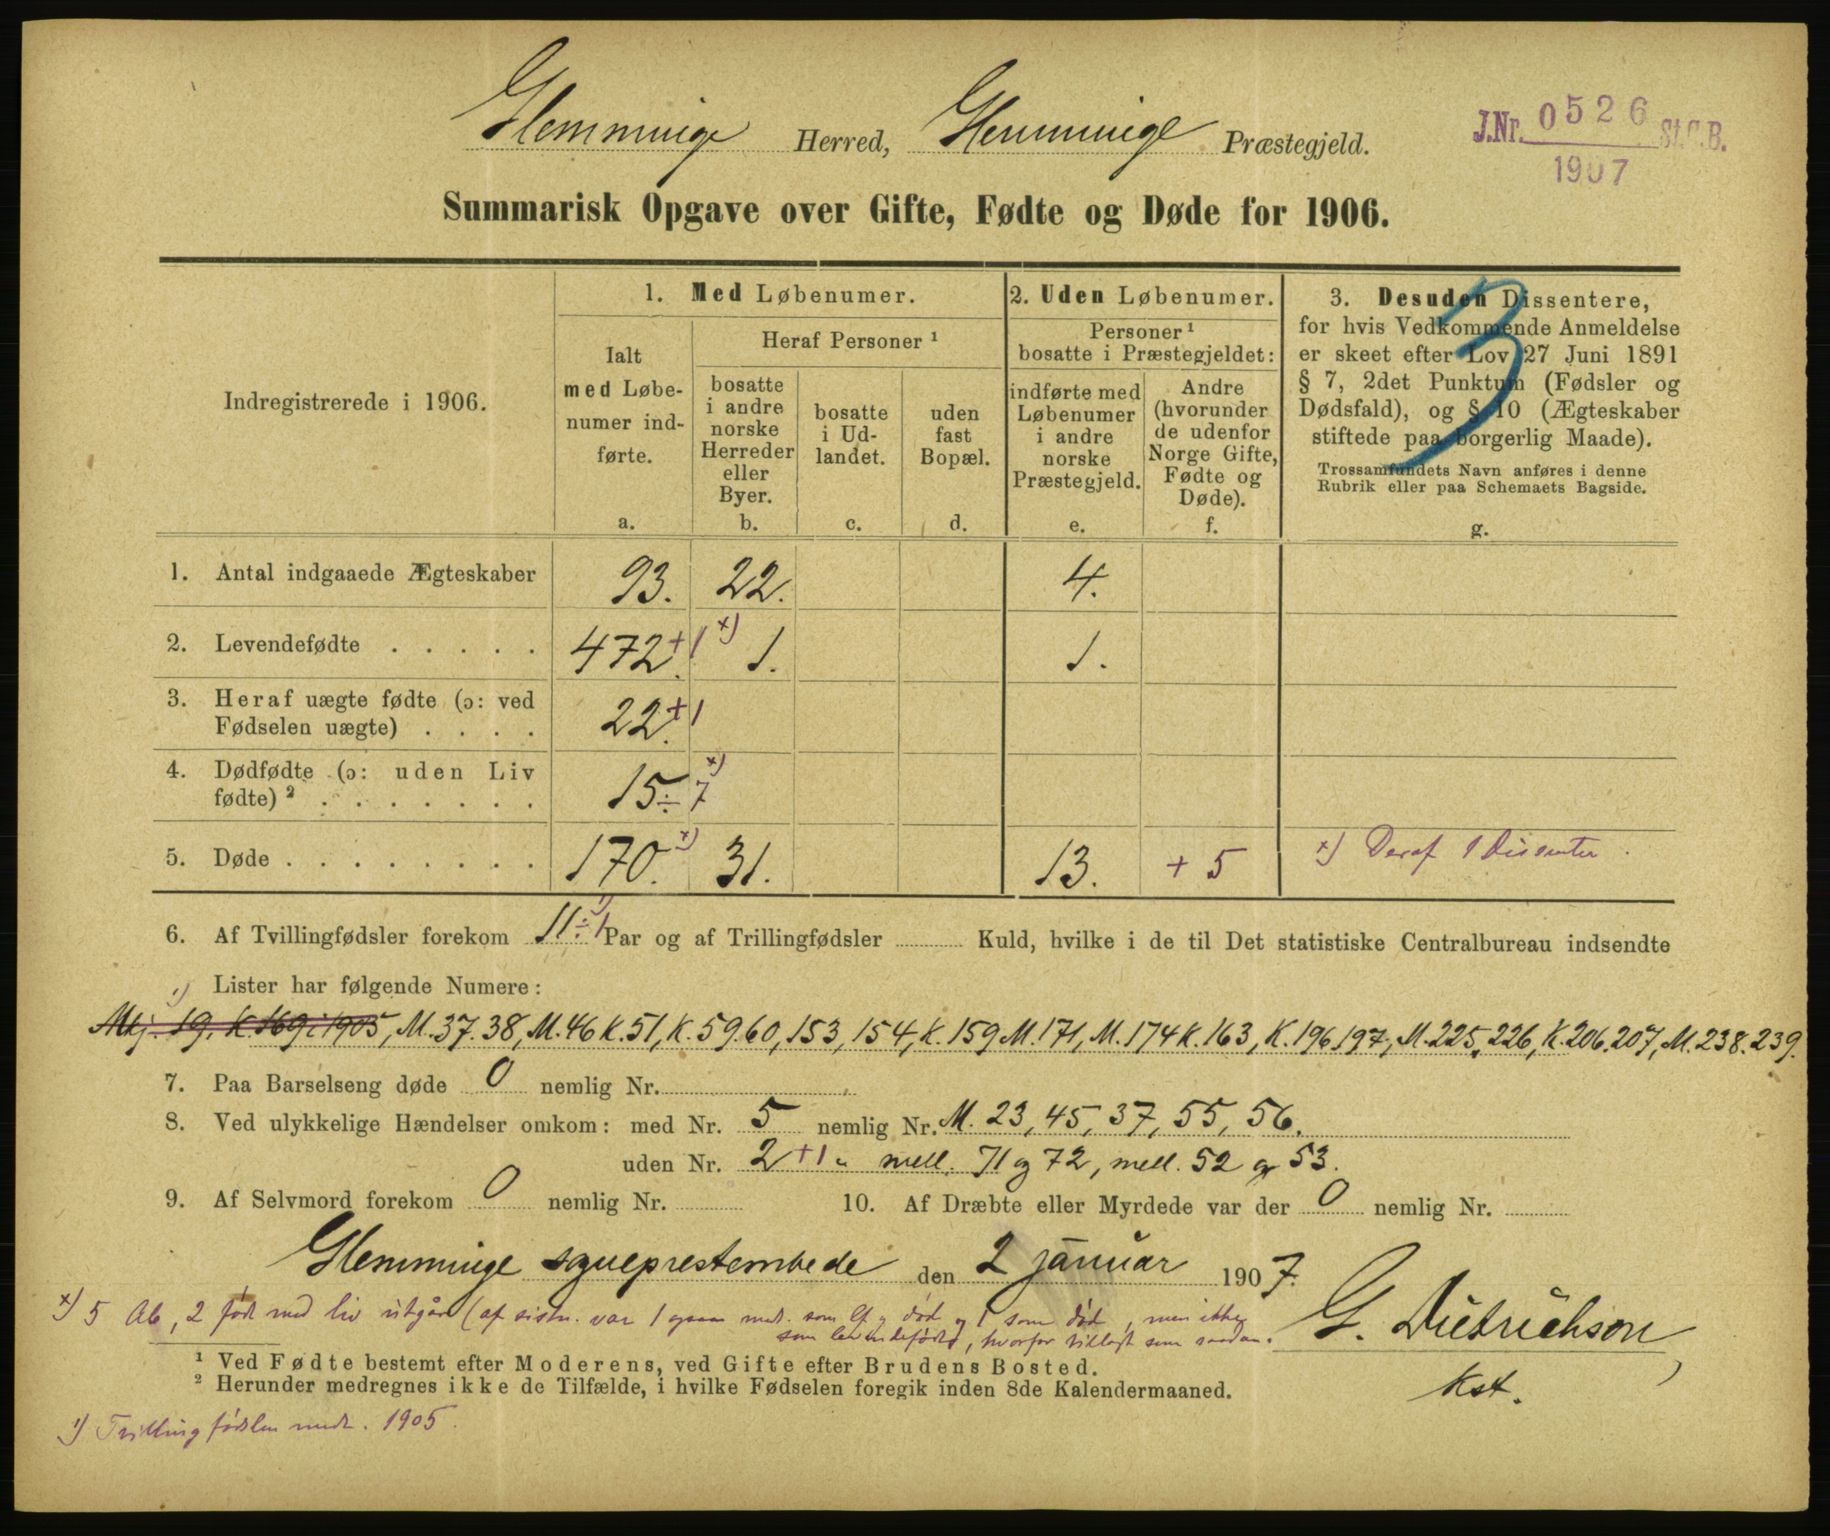 Glemminge Herred, Glemminge Præstegjeld.
J.Nr. 0526 St.C.B.
1907
Summarisk Opgave over Gifte, Fødte og Døde for 1906.
Indregistrerede i 1906.
1. Med Løbenumer.
Ialt med Løbenumer indførte.
a.
Heraf Personer ¹
bosatte i andre norske Herreder eller Byer.
b.
bosatte i Udlandet.
c.
uden fast Bopæl.
d.
2. Uden Løbenumer.
Personer ¹ bosatte i Præstegjeldet:
indførte med Løbenumer i andre norske Præstegjeld.
e.
Andre (hvorunder de udenfor Norge Gifte, Fødte og Døde).
f.
3. Desuden Dissentere,
for hvis Vedkommende Anmeldelse
er skeet efter Lov 27 Juni 1891
§ 7, 2det Punktum (Fødsler og
Dødsfald), og § 10 (Ægteskaber
stiftede paa borgerlig Maade).
Trossamfundets Navn anføres i denne
Rubrik eller paa Schemaets Bagside.
g.
3
1. Antal indgaaede Ægteskaber 93. 22. 4.
2. Levendefødte . . . . . 472. +1 x) 1. 1.
3. Heraf uægte fødte (ɔ: ved
Fødselen uægte) . . . . 22. +1
4. Dødfødte (ɔ: uden Liv
fødte) ² . . . . . . . 15 ÷ 7 x)
5. Døde . . . . . . . . 170. x) 31. 13. + 5 x) Deraf 1 Dissenter.
6. Af Tvillingfødsler forekom 11 ÷ 1 ¹) Par og af Trillingfødsler Kuld, hvilke i de til Det statistiske Centralbureau indsendte
¹) Lister har følgende Numere:
Mkj. 19, K. 169 i 1905, M. 37. 38, M. 46 K. 51, K. 59. 60, 153, 154, K. 159 M. 171, M. 174 K. 163, K. 196 197, M. 225, 226, K. 206. 207, M. 238. 239.
7. Paa Barselseng døde 0 nemlig Nr.
8. Ved ulykkelige Hændelser omkom: med Nr. 5 nemlig Nr. M. 23, 45, 37, 55, 56.
uden Nr. 2 +1 " mell. 71 og 72, mell. 52 og 53.
9. Af Selvmord forekom 0 nemlig Nr. 10. Af Dræbte eller Myrdede var der 0 nemlig Nr.
Glemminge sogneprestembede den 2 januar 1907.
x) 5 Ab, 2 født med liv utgår (af sidstn. var 1 ogsaa medt. som lf og død og 1 som død, men ikke
som levendefødt, hvorfor tillagt som saadan.
G. Dietrichson
kst.
¹ Ved Fødte bestemt efter Moderens, ved Gifte efter Brudens Bosted.
² Herunder medregnes ikke de Tilfælde, i hvilke Fødselen foregik inden 8de Kalendermaaned.
¹) Tvillingfødslen medt. 1905.